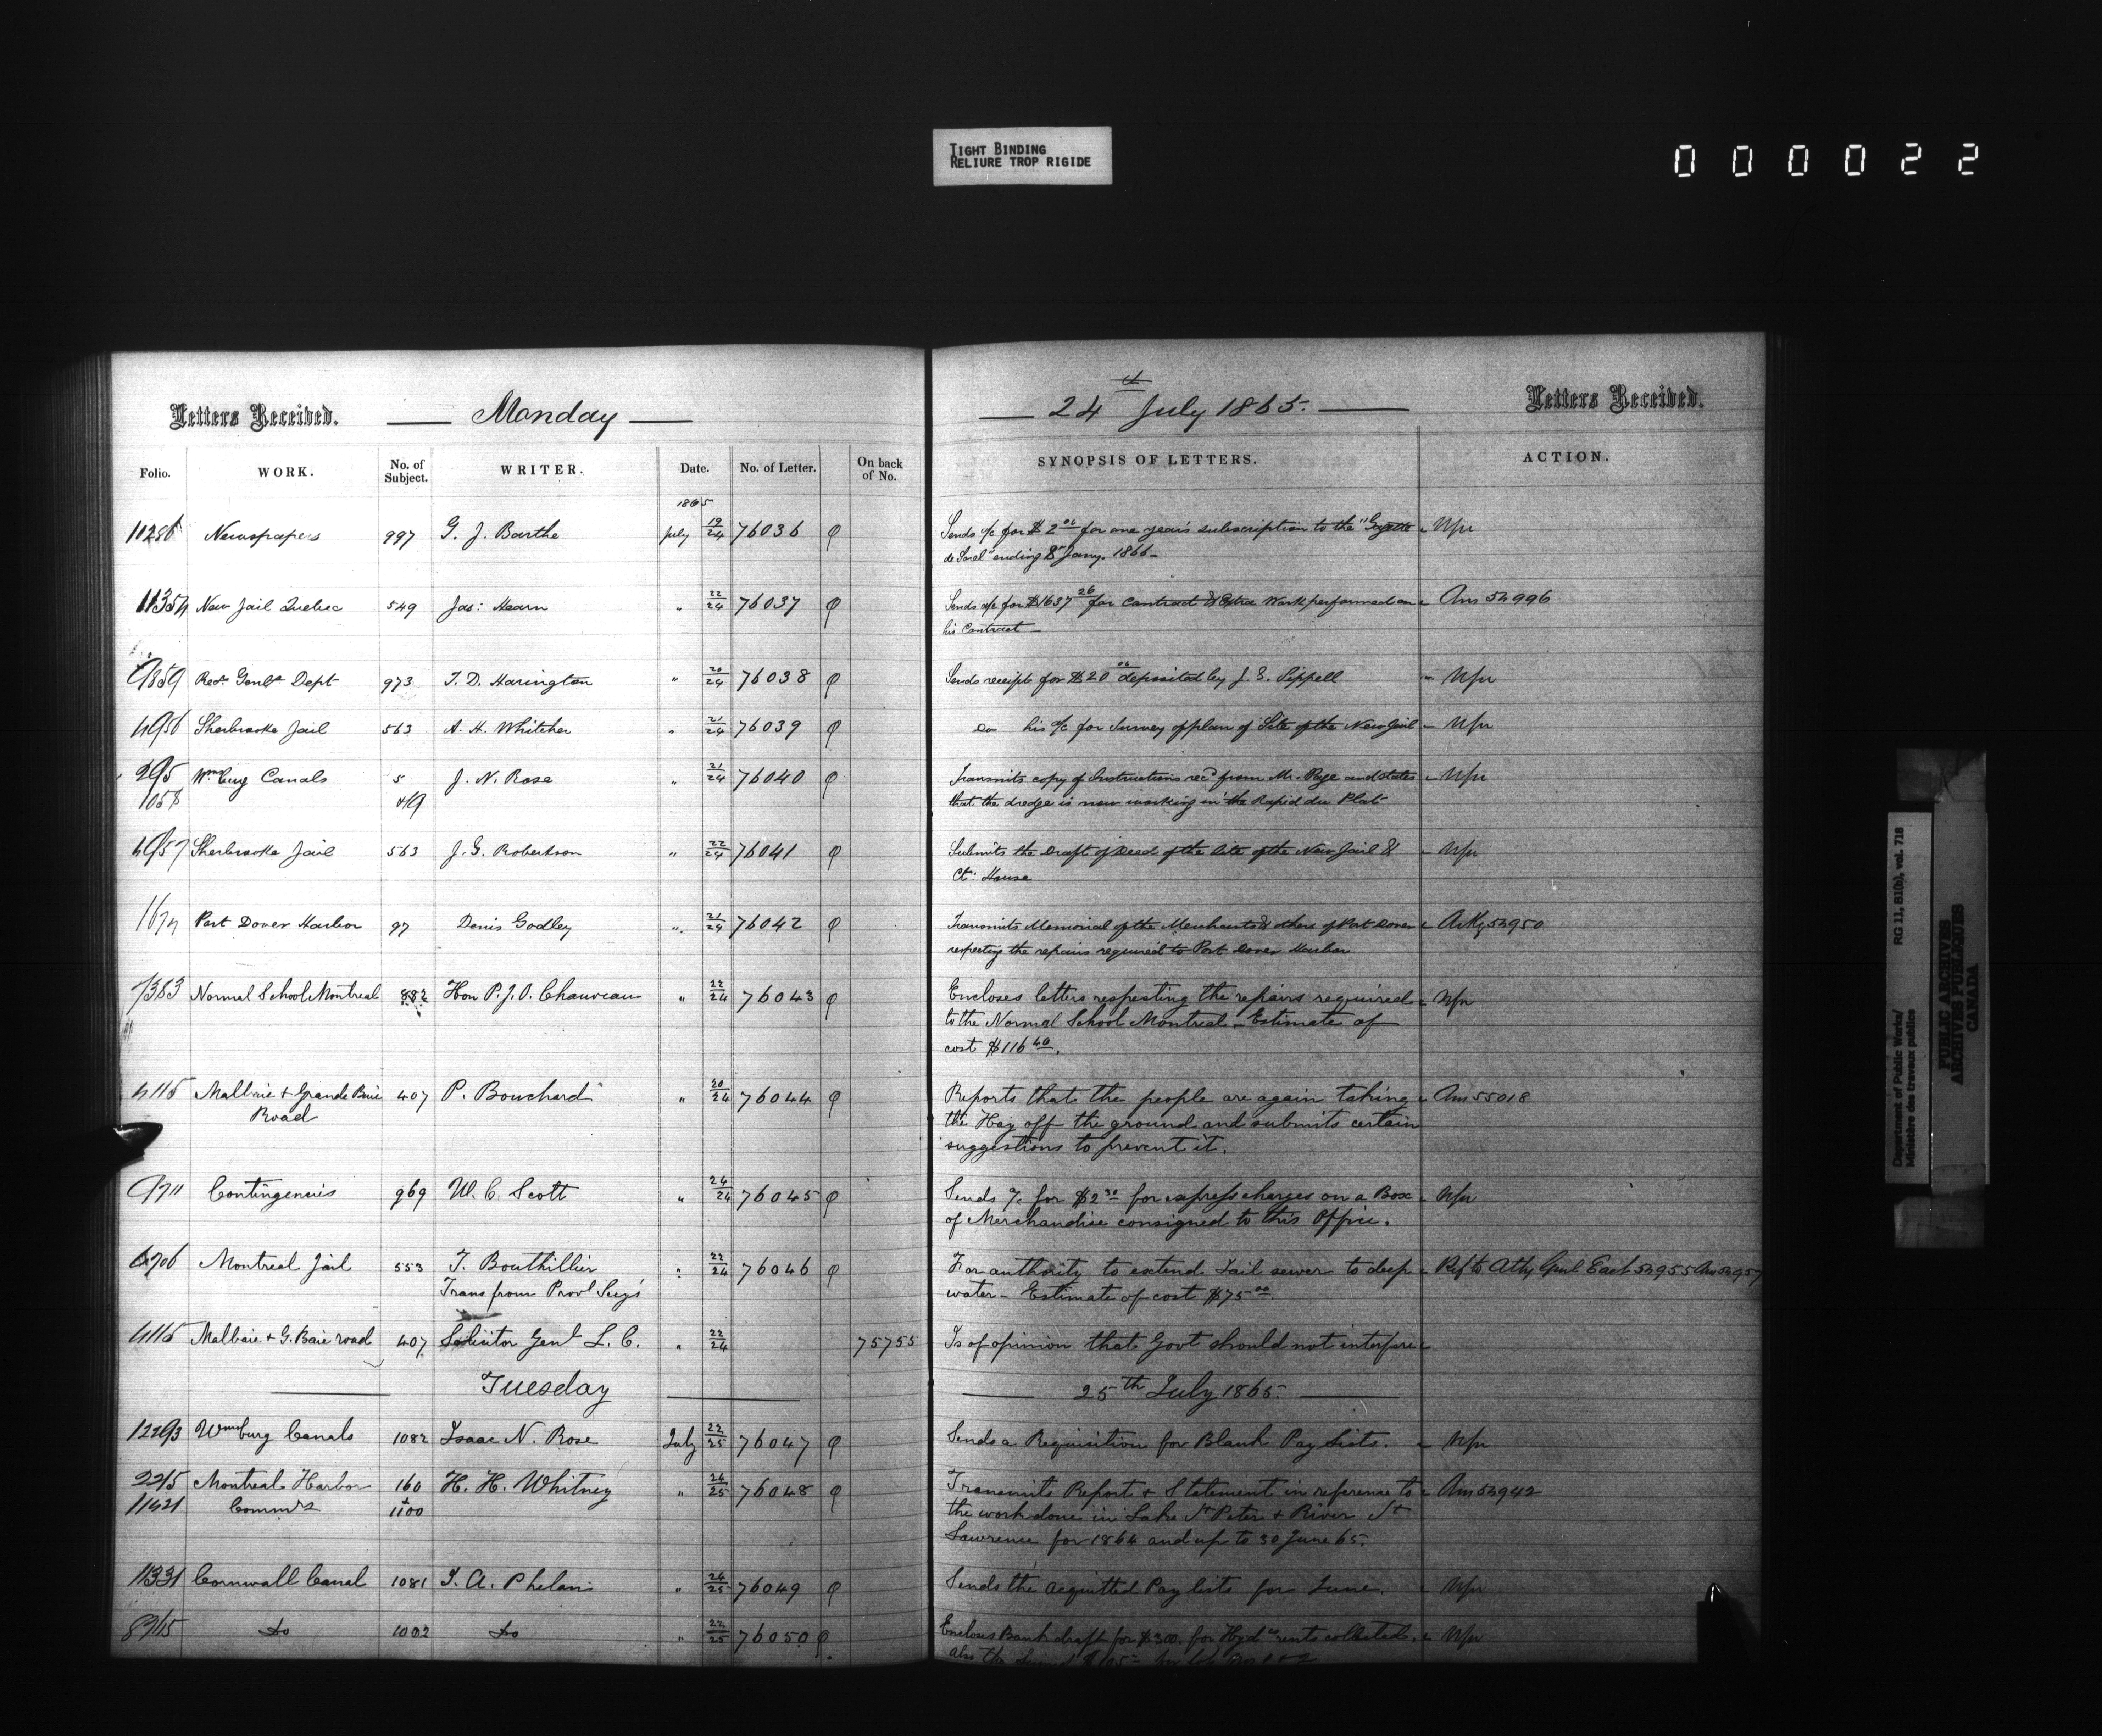 TIGHT BINDING
RELIURE TROP RIGIDE
000022
Letters Received. Monday
Folio. WORK. No. of Subject. WRITER. Date. No. of Letter. On back of No.
1865
Newspapers 997 G. J. Barthe July 19/24 76036
New Jail Quebec 549 Jas: Hearn " 22/24 76037
Recr Genls Dept 973 T. D. Harington " 20/24 76038
Sherbrooke Jail 563 A. H. Whitcher " 21/24 76039
295 Wmburg Canals 5 J. N. Rose " 21/24 76040
1058 419
Sherbrooke Jail 563 J. G. Robertson " 22/24 76041
Port Dover Harbor 97 Denis Godley " 21/24 76042
7383 Normal School Montreal 882 Hon P. J. O. Chauveau " 22/24 76043
4115 Malbaie + Grande Baie 407 P. Bouchard " 20/24 76044
Road
9711 Contingencies 969 W. C. Scott " 24/24 76045
6706 Montreal Jail 553 T. Bouthillier " 22/24 76046
Trans from Provl Secy's
4115 Malbaie + G. Baie road 407 Solicitor Genl L. C. " 22/24 75755
Tuesday
12293 Wmsburg Canals 1082 Isaac N. Rose July 22/25 76047
2215 Montreal Harbor 160 H. H. Whitney " 24/25 76048
11421 Commrs + 1100
11331 Cornwall Canal 1081 T. A. Phelan " 24/25 76049
8915 Do 1002 Do " 22/25 76050
24th July 1865. Letters Received.
SYNOPSIS OF LETTERS. ACTION.
Sends a/c for $2 00 for one year's subscription to the "Gazette - Nfu
de Sorel" ending 8th Jany. 1866 -
Sends a/c for $1637 26 for Contract & Extra Work performed on Ans 54996
his Contract -
Sends receipt for $20 00 deposited by J. G. Sippell - Nfu
Do his a/c for Survey of plan of Site of the New Jail - Nfu
Transmits copy of Instructions recd from Mr. Page and states - Nfu
that the dredge is now working in the Rapid du Plat
Submits the Draft of Deed of the Site of the New Jail & - Nfu
Ct: House
Transmits Memorial of the Merchants & others of Port Dover Ackg 54950
respecting the repairs required to Port Dover Harbor
Encloses letters respecting the repairs required - Nfu
to the Normal School Montreal - Estimate of
cost $116 40.
Reports that the people are again taking Ans 55018
the Hay off the ground and submits certain
suggestions to prevent it.
Sends a/c for $2 30 for express charges on a Box - Nfu
of Merchandise consigned to this Office.
For authority to extend Jail sewer to deep - Ref to Atty Genl East 54955 Ans 54957
water - Estimate of cost $75 00.
Is of opinion that Govt should not interfere
25th July 1865.
Sends a Requisition for Blank Pay Lists. - Nfu
Transmits Report + Statement in reference to Ans 54942
the work done in Lake St Peter + River St
Lawrence for 1864 and up to 30 June 65.
Sends the acquitted Pay lists for June. - Nfu
Encloses Bank draft for $300. for Hydc rents collected. - Nfu
also the
Department of Public Works/ RG 11, B1(b), vol. 718
Ministère des travaux publics
PUBLIC ARCHIVES
ARCHIVES PUBLIQUES
CANADA